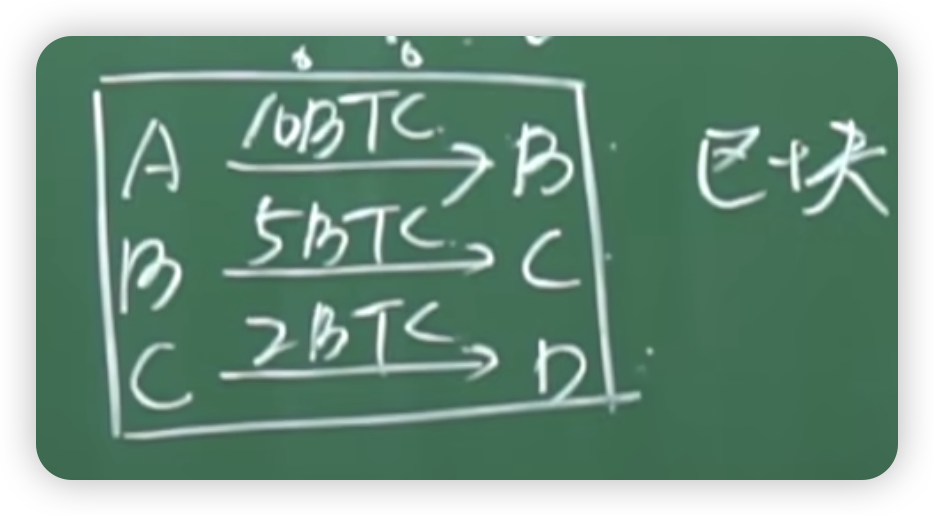 A 10BTC → B
B 5BTC → C
C 2BTC → D
区块